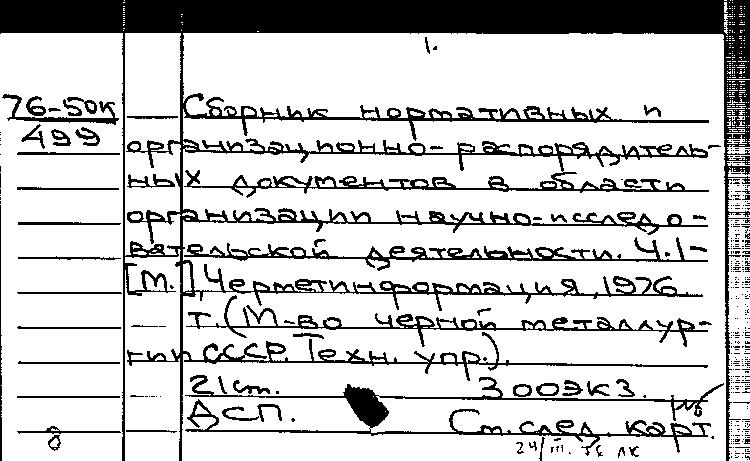 1.
76-50к
499
Сборник нормативных и
организационно-распорядитель-
ных документов в области
организации научно-исследо-
вательской деятельности. Ч.1-
[М.], Черметинформация, 1976.
т. (М-во черной металлур-
гии СССР. Техн. упр.).
21см. 300экз.
ДСП. См. след. карт.
24/III.